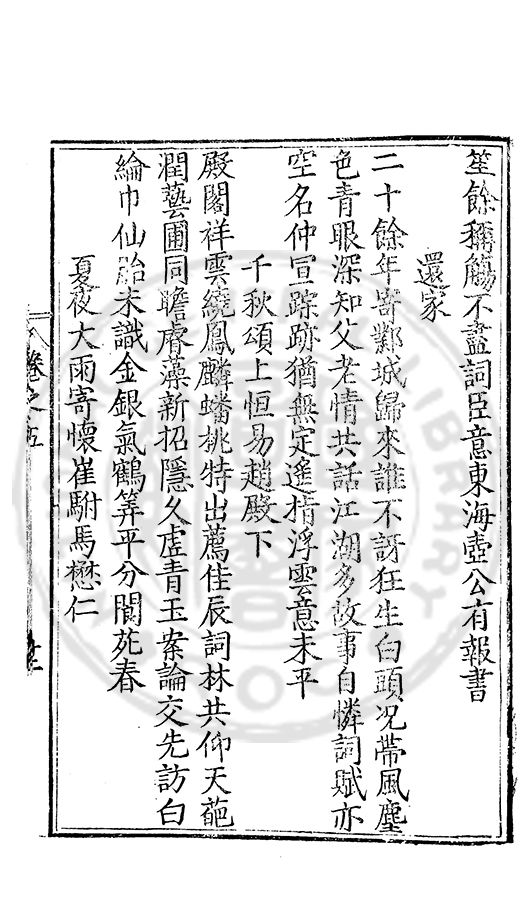 笙餘稱觴不盡詞臣意東海壺公有報書
還家
二十餘年寄鄴城歸來誰不訝狂生白頭况帶風塵
色青眼深知父老情共話江湖多故事自憐詞賦亦
空名仲宣踪跡猶無定遙指浮雲意未平
千秋頌上恒易趙殿下
殿閣祥雲繞鳳麟蟠桃特出薦佳辰詞林共仰天葩
潤藝圃同瞻睿藻新招隱久虛青玉案論交先訪白
綸巾仙胎未識金銀氣鶴筭平分閬苑春
夏夜大雨寄懷崔駙馬懋仁
卷之五
LIBRARY